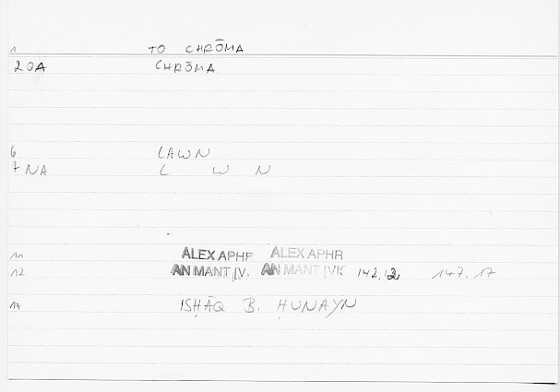 1 TO CHRŌMA
2 QA CHRŌMA
6 LAWN
7 NA L W N
11 ALEX APHR ALEX APHR
12 AN MANT [V. AN MANT [VIC 142.12 147.17
14 ISḤĀQ B. ḤUNAYN